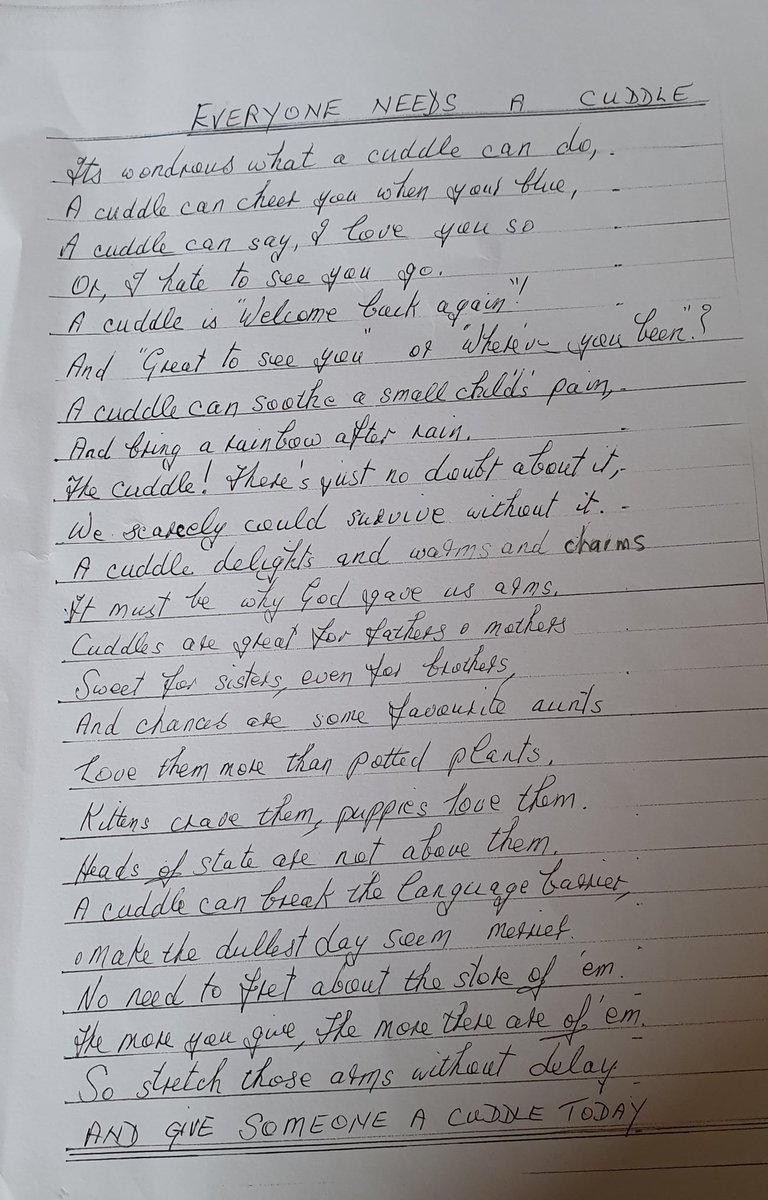 EVERYONE NEEDS A CUDDLE
Its wondrous what a cuddle can do, .
A cuddle can cheer you when your blue, -
A cuddle can say, I love you so -
Or, I hate to see you go. -
A cuddle is "Welcome back again"! -
And "Great to see you" or "Where've you been"?
A cuddle can soothe a small child's pain, -
And bring a rainbow after rain. -
The cuddle! There's just no doubt about it, -
We scarcely could survive without it. -
A cuddle delights and warms and charms
It must be why God gave us arms.
Cuddles are great for fathers & mothers
Sweet for sisters, even for brothers,
And chances are some favourite aunts
Love them more than potted plants.
Kittens crave them, puppies love them.
Heads of state are not above them.
A cuddle can break the language barrier,
& make the dullest day seem merrier.
No need to fret about the store of 'em.
The more you give, the more there are of 'em.
So stretch those arms without delay
AND GIVE SOMEONE A CUDDLE TODAY